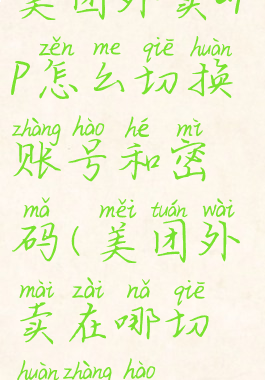 美团外卖
zěn me qiē huàn
P怎么切换
zhàng hào hé mì
账号和密
mǎ měi tuán wài
码(美团外
mài zài nǎ qiē
卖在哪切
huàn zhàng hào